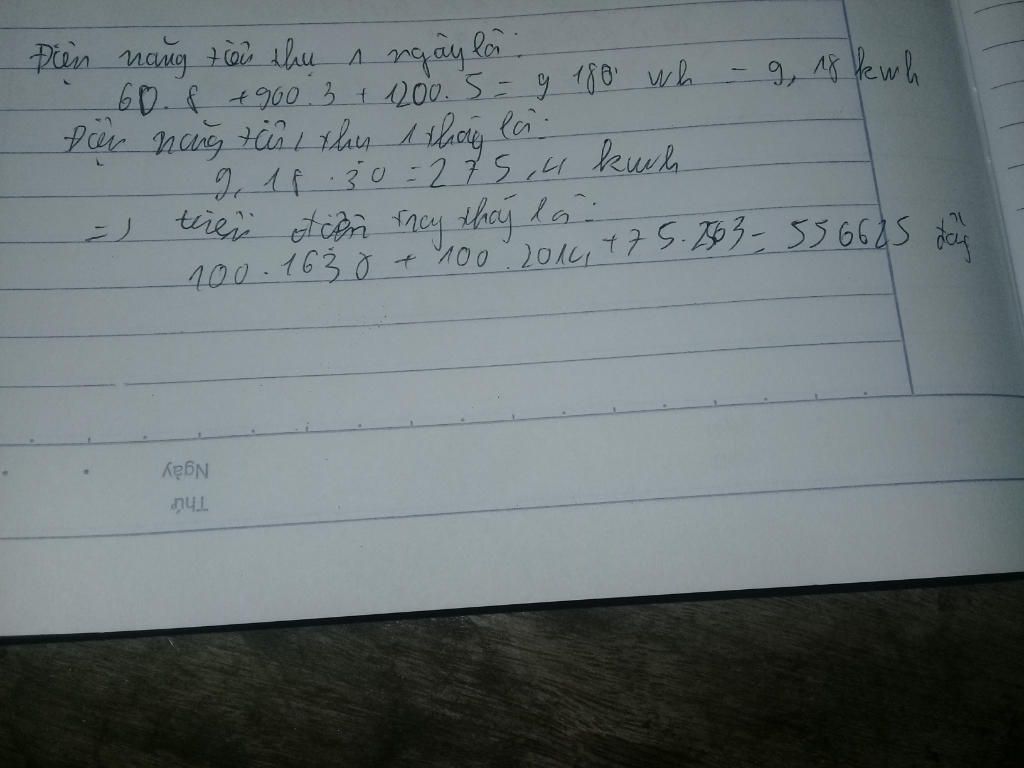 Điện năng tiêu thụ 1 ngày là:
60.8 + 900.3 + 1200.5 = 9 180 wh = 9,18 kwh
Điện năng tiêu thụ 1 tháng là:
9,18.30 = 275,4 kwh
=> tiền điện may thág là:
100.1630 + 100.2014 + 75.2563 = 556625 đồg
Ngày
Thứ